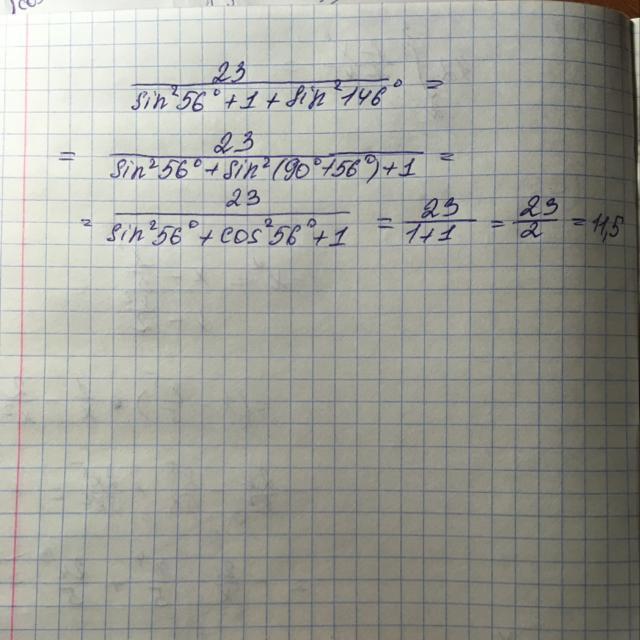 23
sin²56° + 1 + sin²146° =
= 23
sin²56° + sin²(90° + 56°) + 1 =
= 23 / sin²56° + cos²56° + 1 = 23 / 1+1 = 23 / 2 = 11,5